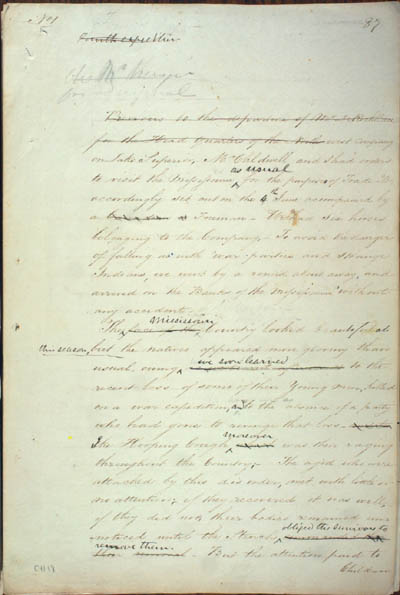 No 1
87
Fourth expedition
Mr
Previous to the departure of Mr
for the Head Quarters of the North west Company
on Lake Superior, Mr Caldwell and I had orders
to visit the Missisourie as usual, for the purposes of Trade. We
accordingly set out on the 4th June accompanied by
a Freeman. We had six horses
belonging to the Company. To avoid the danger
of falling in with war parties and strange
Indians, we went by a round about way, and
arrived on the Banks of the Missisourie without
any accident.
The Missisourie Country looked beautiful at
this season, but the natives appeared more gloomy than
usual, owing, we soon learned to the
recent loss of some of their Young men, killed
on a war expedition, and to the absence of a party
who had gone to revenge that loss.
The Hooping Cough moreover was then raging
throughout the Country. The aged who were
attacked by this disorder, met with little or
no attention; if they recovered it was well,
if they did not, their bodies remained un-
noticed until the stench obliged the survivors to
remove them. But the attention paid to
Children